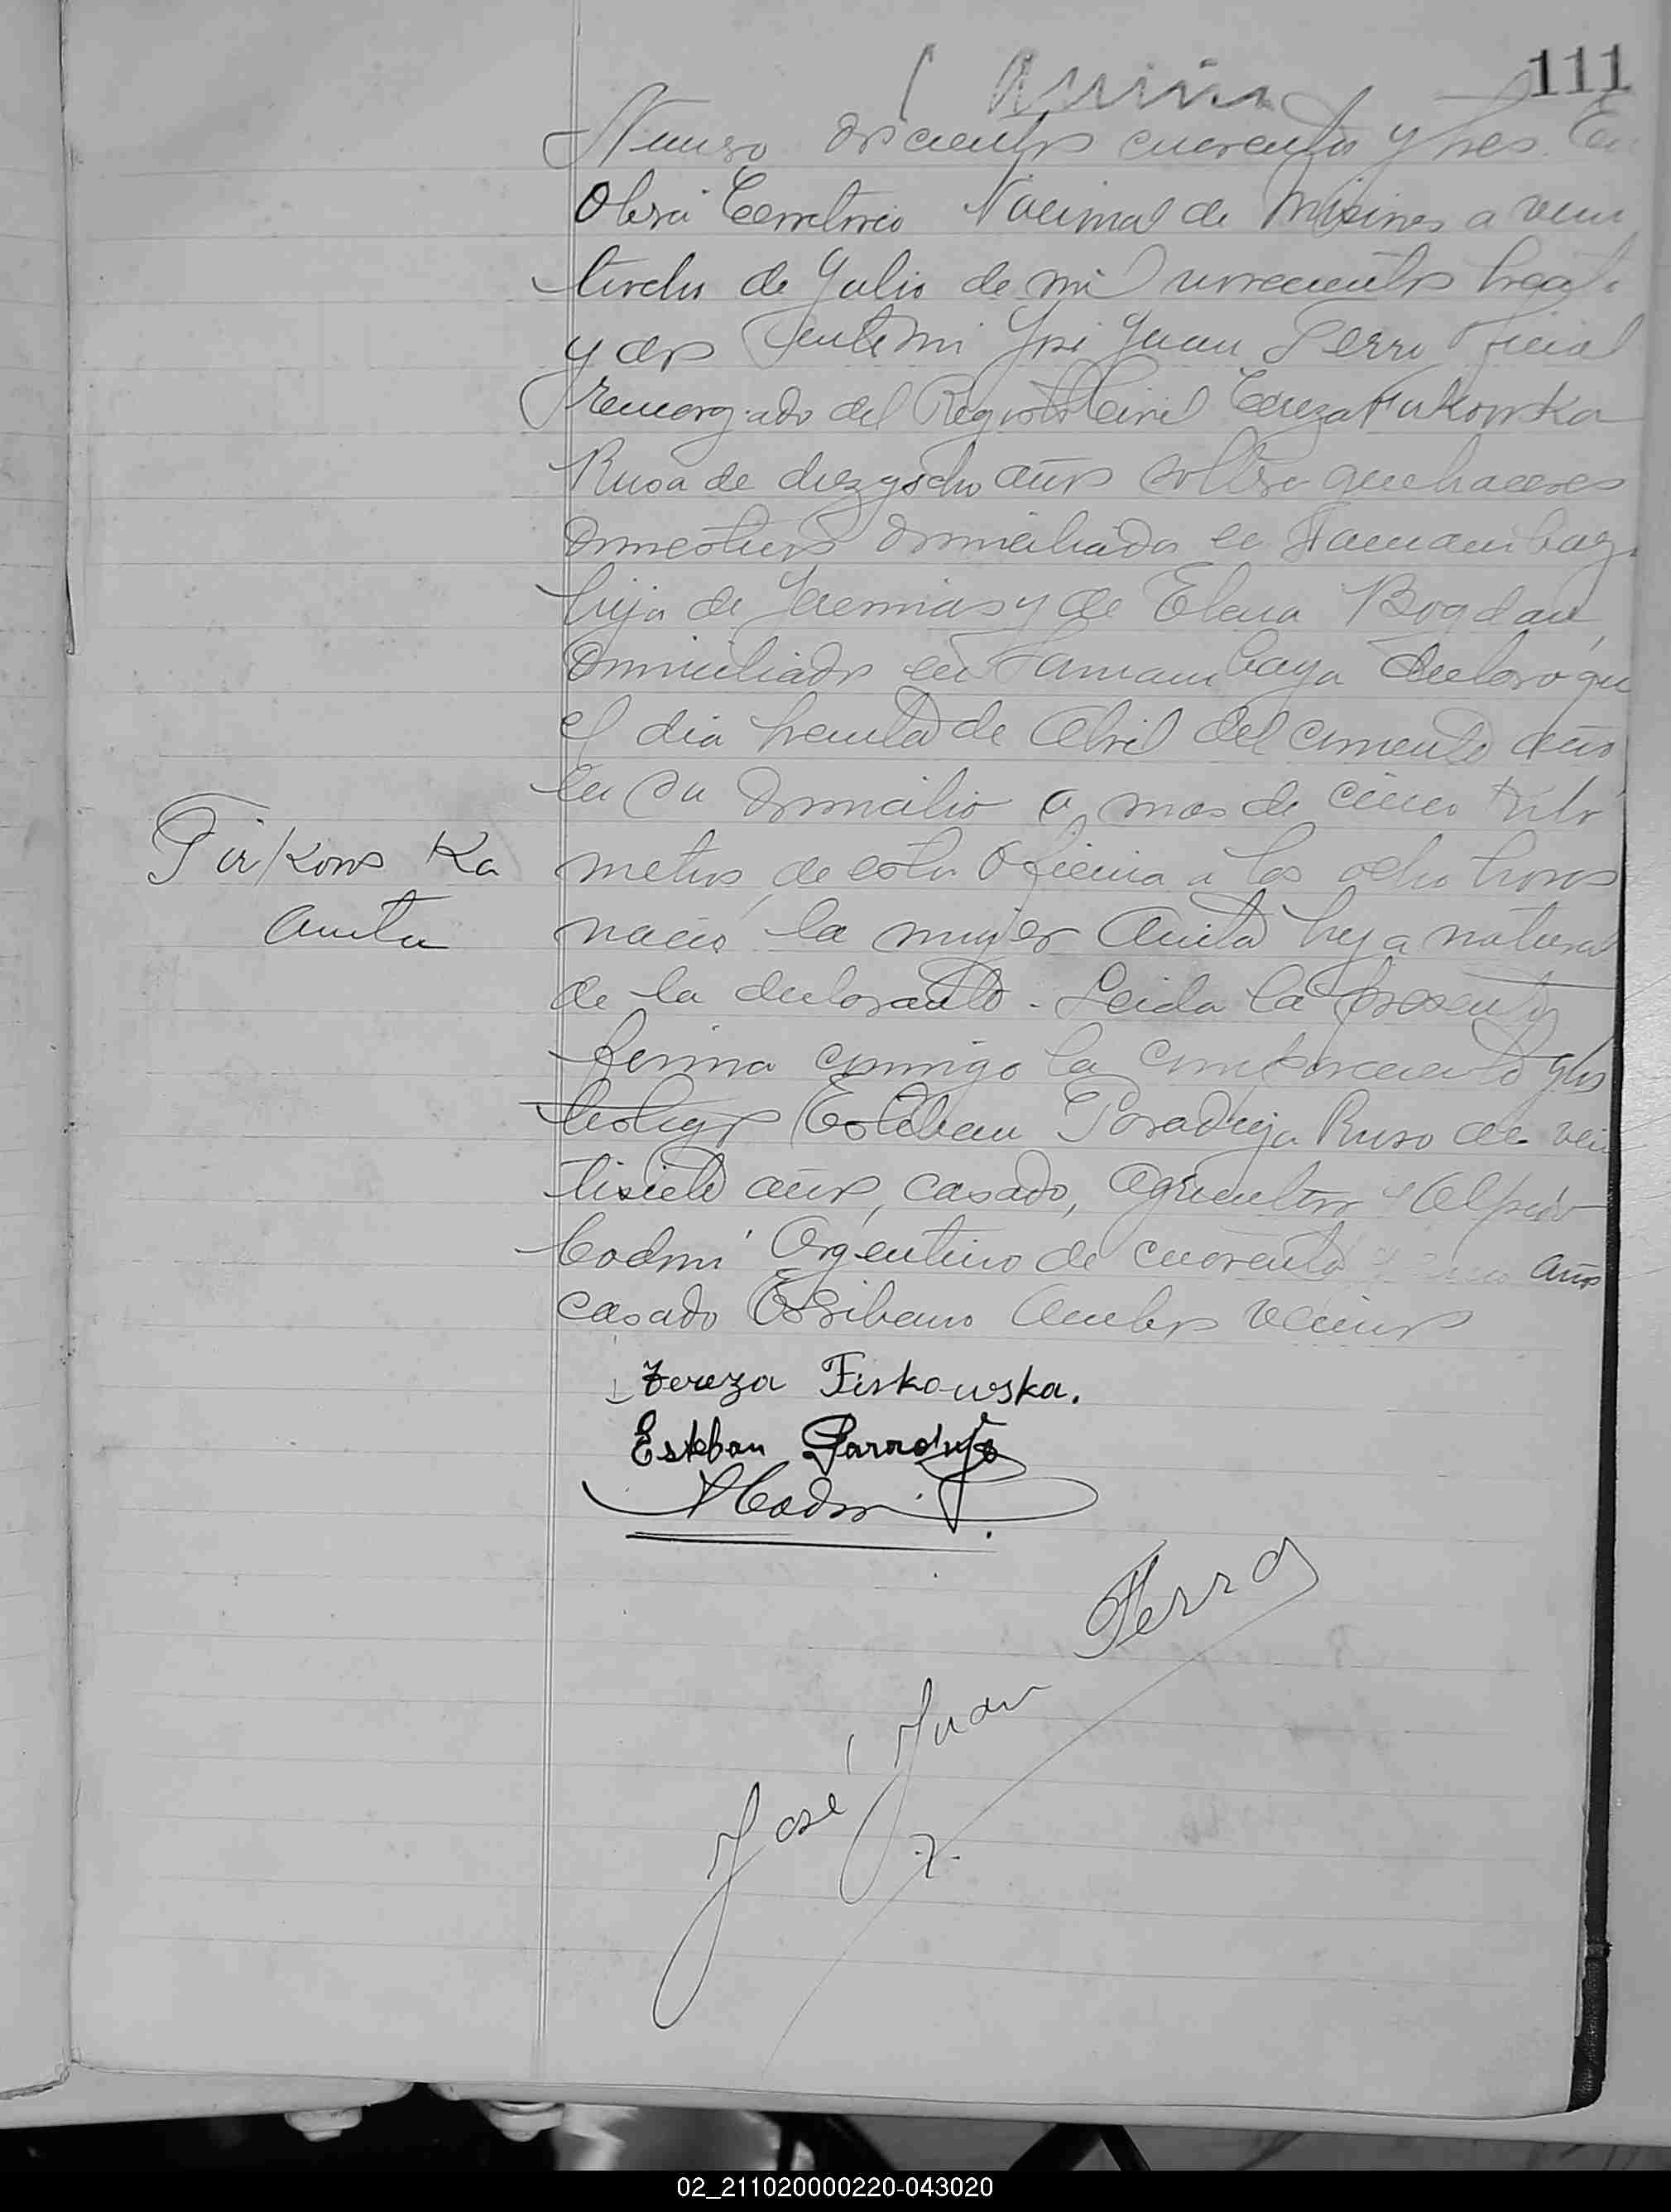 111
Numero doscientos cuarenta y tres. En
Oberá Territorio Nacional de Misiones a vein
tiocho de Julio de mil novecientos treinta
y dos ante mi José Juan Ferro Oficial
encargado del Registro Civil Tereza Firkowska
Rusa de diez y ocho años soltera quehaceres
domesticos domiciliada en Samambaya
hija de Jeremias y de Elena Bogdan
domiciliados en Samambaya declaró que
el dia treinta de Abril del corriente año
en su domicilio a mas de cinco kilo
metros de esta Oficina a las ocho horas
nació la mujer Anita hija natural
de la declarante - Leida la presente
firma conmigo la compareciente y los
testigos Esteban Paraduja Ruso de vein
tisiete años, casado, agricultor y Alfredo
Codmi Argentino de cuarenta años
casado Escribano ambos vecinos
Firkows Ka
Anita
Tereza Firkowska.
Esteban Paraduja
ACodmi
José Juan Ferro
02_211020000220-043020